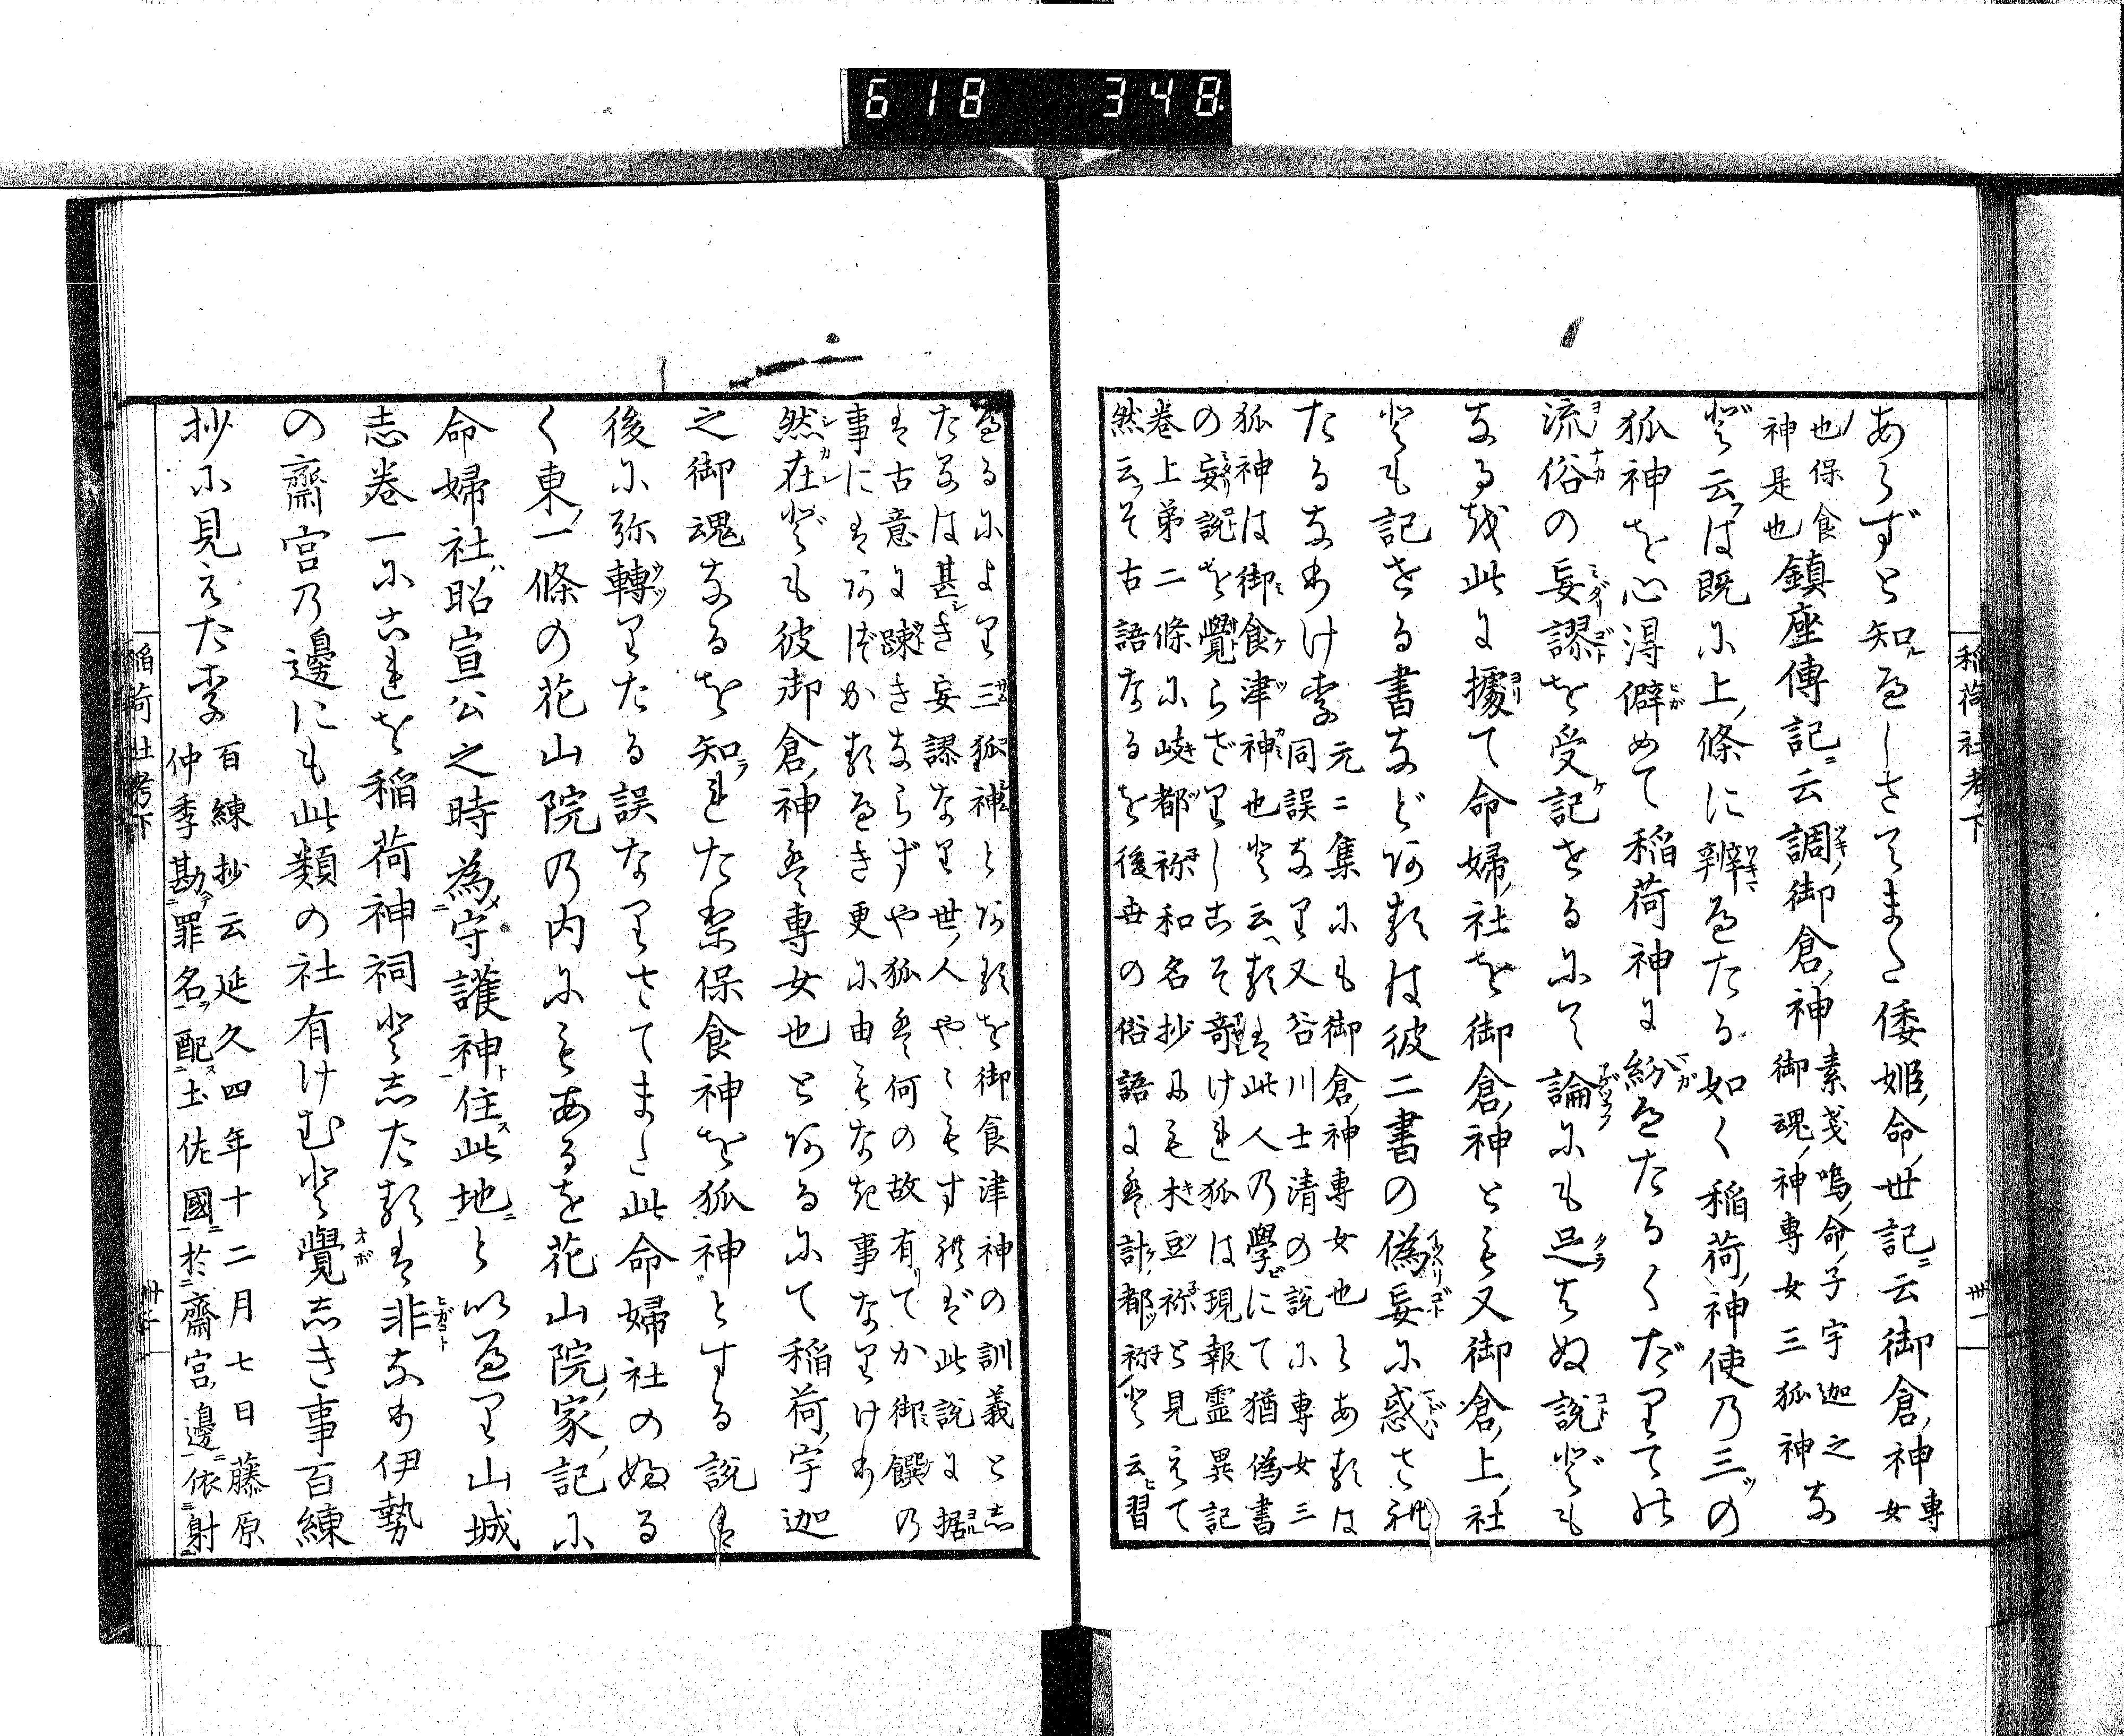 618 348
稲荷社考下
卅一
あらずと知べしさてまた倭姫命世記ニ云御倉神専女
也保食
神是也鎮座傳記ニ云調御倉神素戔嗚命子宇迦之
御魂神専女三狐神な
ど云は既に上條に辨へたる如く稲荷神使乃三ツの
狐神を心得僻めて稲荷神に紛へたるくだりて
流俗の妄謬を受記せるにて論にも足らぬ説ども
なるを此に據て命婦社を御倉神とも又御倉上社
とも記せる書などある は彼二書の偽妄に惑され
たるなりけり元元集にも御倉神専女也とあるは
同誤なり又谷川士清の説に専女三
狐神は御食津神也と云へるは此人の學にて猶偽書
の妄説を覺らざりしこそ奇けれ狐は現報霊異記
巻上第二條に岐都祢和名抄にも木豆祢と見えて
然云ぞ古語なるを後世の俗語には計都祢と云習
へるによりて三狐神とあるを御食津神の訓義と志
たるは甚き妄謬なり世人やゝもすれば此説に据
は古意に疎きならずや狐は何の故有てか御饌乃
事にはあづかるべき更に由もなき事なりけり
然在ども彼御倉神は専女也とあるにて稲荷宇迦
之御魂なるを知られたり保食神を狐神とする説は
後に弥轉りたる誤なりさてまた此命婦社のふる
く東一條の花山院乃内にもあるを花山院家記に
命婦社昭宣公之時為守護神住此地といへり山城
志巻一にこれを稲荷神祠と志たるは非なり伊勢
の齋宮乃邊にも此類の社有けむと覺志き事百練
抄に見えたり百練抄云延久四年十二月七日藤原
仲季勘罪名配土佐國於齋宮邊依射
稲荷社考下
卅二